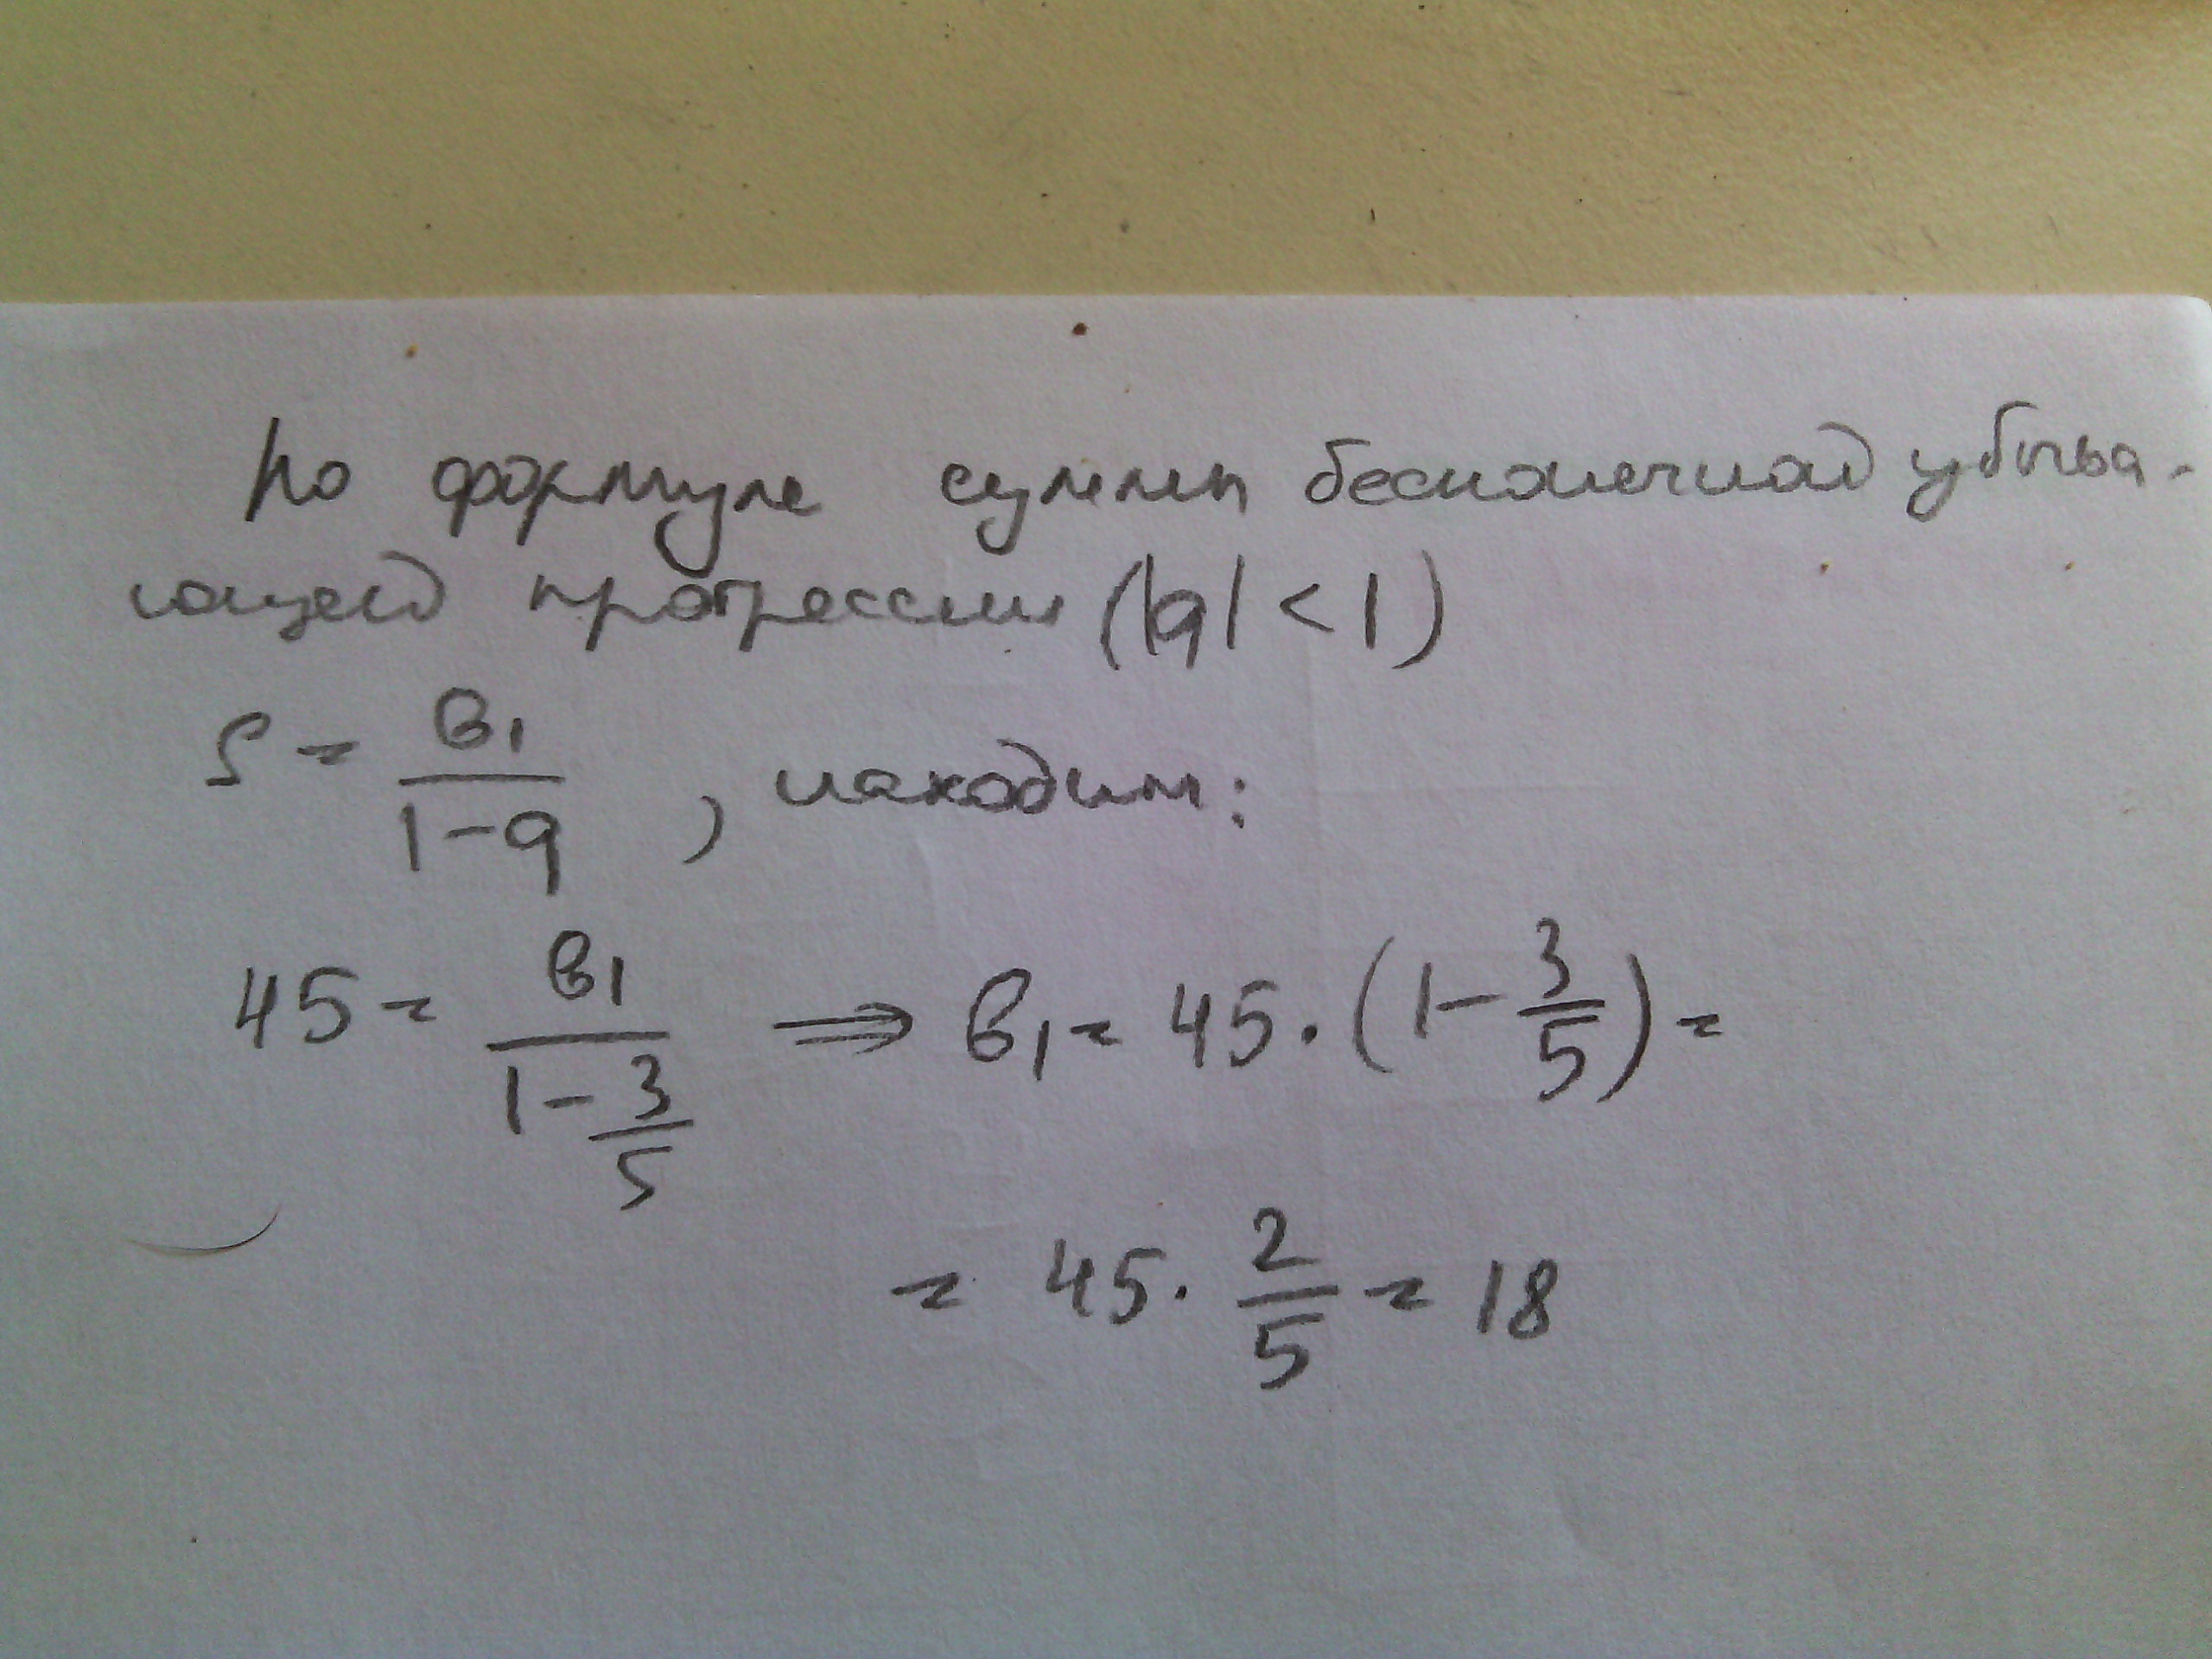 По формуле суммы бесконечной убыва-
ющей прогрессии (|q| < 1)
S = в₁ / (1 - q) , находим:
45 = в₁ / (1 - 3/5) ⇒ в₁ = 45 · (1 - 3/5) =
= 45 · 2/5 = 18